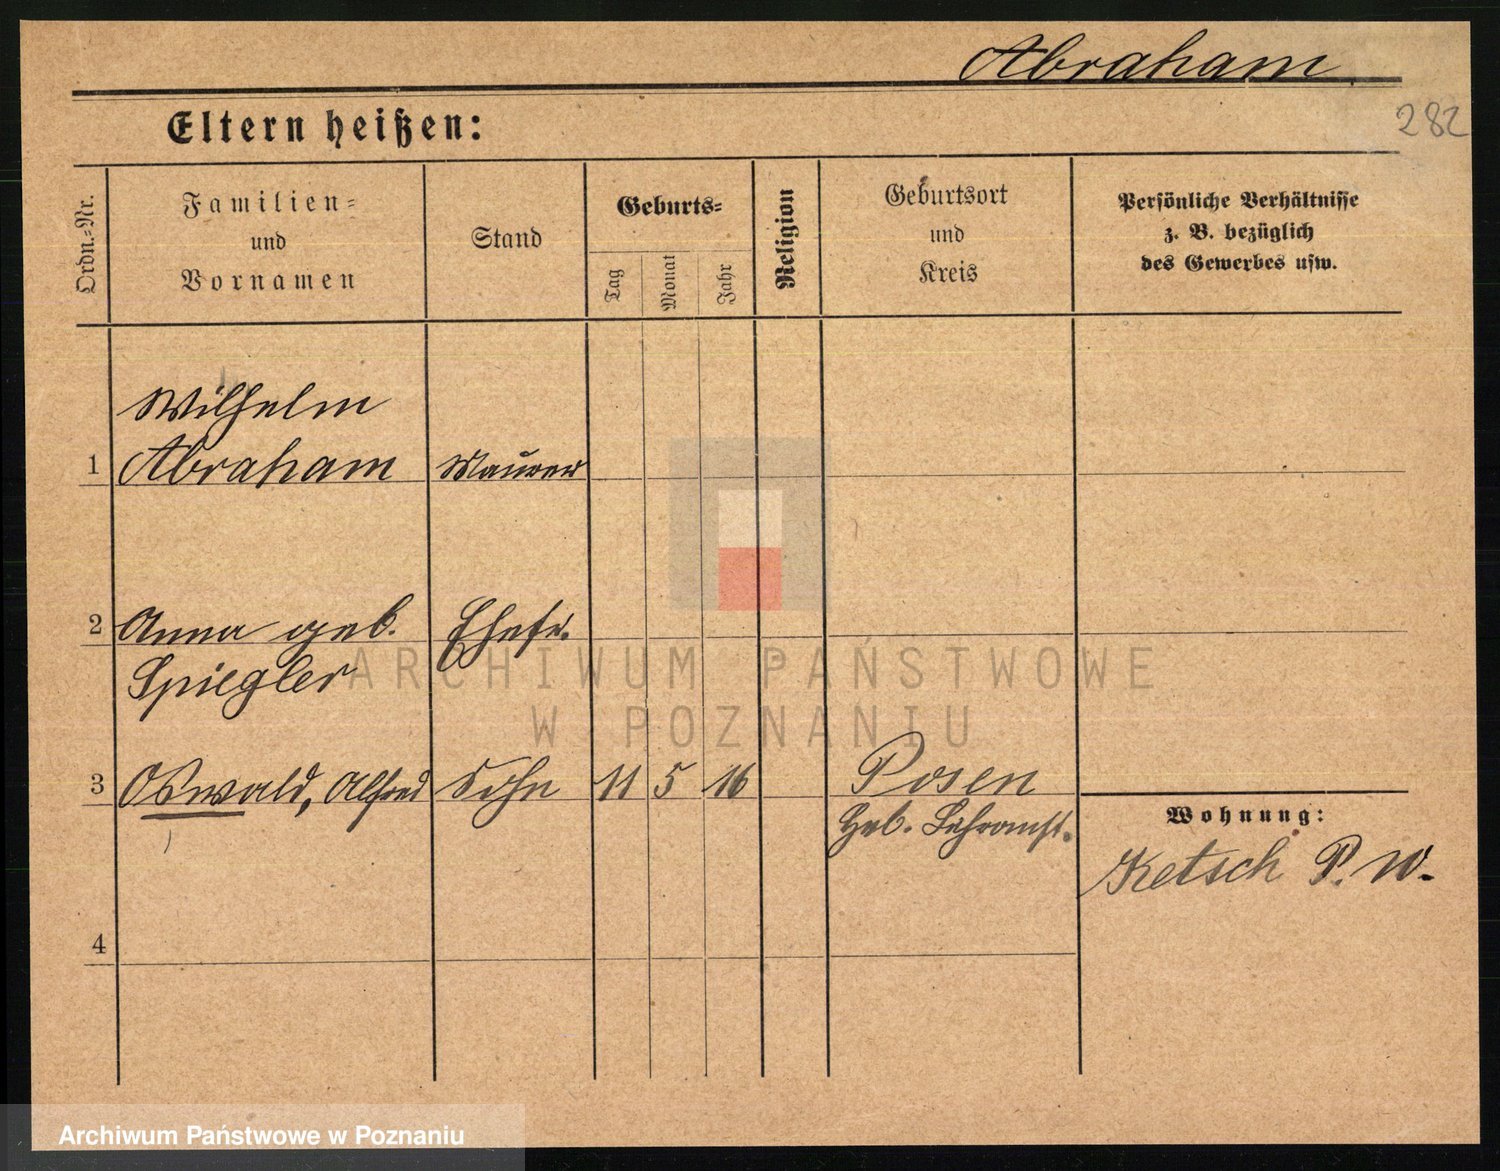 Abraham
282
Eltern heißen:
Ordn.=Nr.
Familien=
und
Vornamen
Stand
Geburts=
Tag
Monat
Jahr
Religion
Geburtsort
und
Kreis
Persönliche Verhältnisse
z. B. bezüglich
des Gewerbes usw.
Wilhelm
1 Abraham Maurer
2 Anna geb. Ehefr.
Spiegler
ARCHIWUM PAŃSTWOWE
W POZNANIU
3 Oswald, Alfred Sohn 11 5 16 Posen
Geb. Lehranst.
Wohnung:
Ketsch P. W.
4
Archiwum Państwowe w Poznaniu